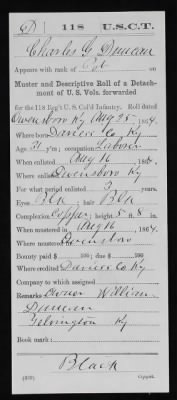 D | 118 | U.S.C.T.
Charles G Duncan
Appears with rank of Pvt on
Muster and Descriptive Roll of a Detach-
ment of U. S. Vols. forwarded
for the 118 Reg't U. S. Col'd Infantry. Roll dated
Owensboro Ky Aug 25, 1864.
Where born Daviess Co Ky
Age 21 y'rs; occupation Laborer
When enlisted Aug 16, 1864.
Where enlisted Owensboro
For what period enlisted 3 years.
Eyes Blk; hair Blk
Complexion Copper; height 5 ft. 8 in.
When mustered in Aug 16, 1864.
Where mustered in Owensboro
Bounty paid $ 100; due $ 100
Where credited Daviess Co Ky
Company to which assigned
Remarks: Owner William
Duncan
Yelvington Ky
Book mark:
Black
(339) Copyist.